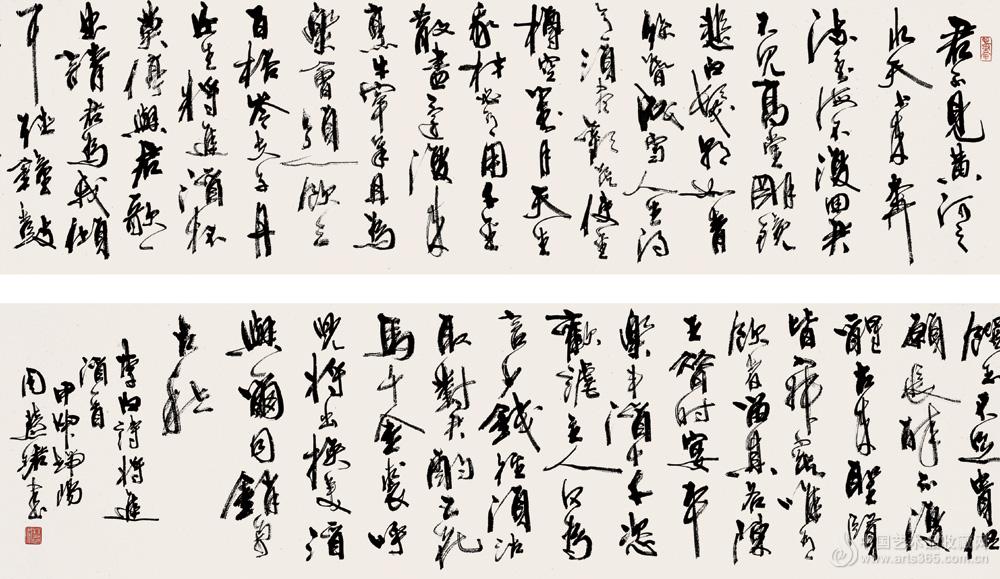 君不見黃河之
水天上來奔
流到海不復回君
不見高堂明鏡
悲白髮朝如青
絲暮成雪人生得
意須盡歡莫使金
樽空對月天生
我材必有用千金
散盡還復來
烹牛宰羊且為
樂會須一飲三
百杯岑夫子丹
丘生將進酒杯
莫停與君歌一
曲請君為我傾
耳聽鐘鼓
饌玉不足貴但
願長醉不復
醒古來聖賢
皆寂寞唯有
飲者留其名陳
王昔時宴平
樂斗酒十千恣
歡謔主人何為
言少錢徑須沽
取對君酌五花
馬千金裘呼
兒將出換美酒
與爾同銷萬
古愁
李白詩將進
酒首
甲申端陽
周慧珺書
www.arts365.com.cn